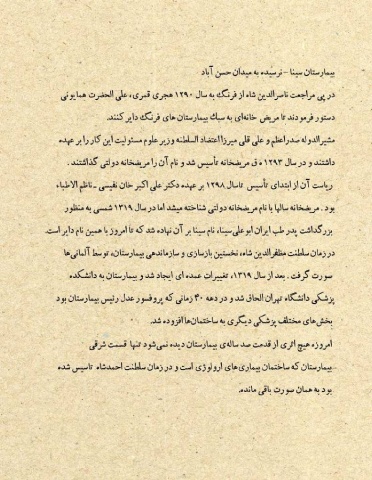 بیمارستان سینا – نرسیده به میدان حسن آباد
در پی مراجعت ناصرالدین شاه از فرنگ به سال ۱۲۹۰ هجری قمری، علی الحضرت همایونی
دستور فرمودند تا مریض خانه‌ای به سبک بیمارستان های فرنگ دایر کنند.
مشیرالدوله صدراعظم و علی قلی میرزا اعتضاد السلطنه وزیر علوم مسئولیت این کار را بر عهده
داشتند و در سال ۱۲۹۳ ه ق مریضخانه تأسیس شد و نام آن را مریضخانه دولتی گذاشتند .
ریاست آن از ابتدای تأسیس تاسال ۱۲۹۸ بر عهده دکتر علی اکبر خان نفیسی – ناظم الاطباء
بود . مریضخانه سالها با نام مریضخانه دولتی شناخته میشد اما در سال ۱۳۱۹ شمسی به منظور
بزرگداشت پدر طب ایران ابو علی سینا، نام سینا بر آن نهاده شد که تا امروز با همین نام دایر است.
در زمان سلطنت مظفرالدین شاه، نخستین بازسازی و سازماندهی بیمارستان، توسط آلمانی‌ها
صورت گرفت . بعد از سال ۱۳۱۹، تغییرات عمده ای ایجاد شد و بیمارستان به دانشکده
پزشکی دانشگاه تهران الحاق شد و در دهه ۴۰ زمانی که پروفسور عدل رئیس بیمارستان بود
بخش‌های مختلف پزشکی دیگری به ساختمان‌ها افزوده شد.
امروزه هیچ اثری از قدمت صد ساله‌ی بیمارستان دیده نمی‌شود تنها قسمت شرقی
بیمارستان که ساختمان بیماری‌های ارولوژی است و در زمان سلطنت احمدشاه تاسیس شده
بود به همان صورت باقی مانده.